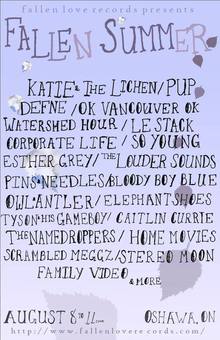 fallen love records presents
FALLEN SUMMER
KATIE & THE LICHEN/PUP
DEFNE/OK VANCOUVER OK
WATERSHED HOUR/LE STACK
CORPORATE LIFE/SO YOUNG
ESTHER GREY/THE LOUDER SOUNDS
PINS & NEEDLES/BLOODY BOY BLUE
OWL:ANTLER/ELEPHANT SHOES
TYSON & HIS GAMEBOY/CAITLIN CURRIE
THE NAMEDROPPERS/HOME MOVIES
SCRAMBLED MEGGZ/STEREO MOON
FAMILY VIDEO
& MORE
AUGUST 8 TO 11 OSHAWA, ON
http://www.fallenloverecords.com/